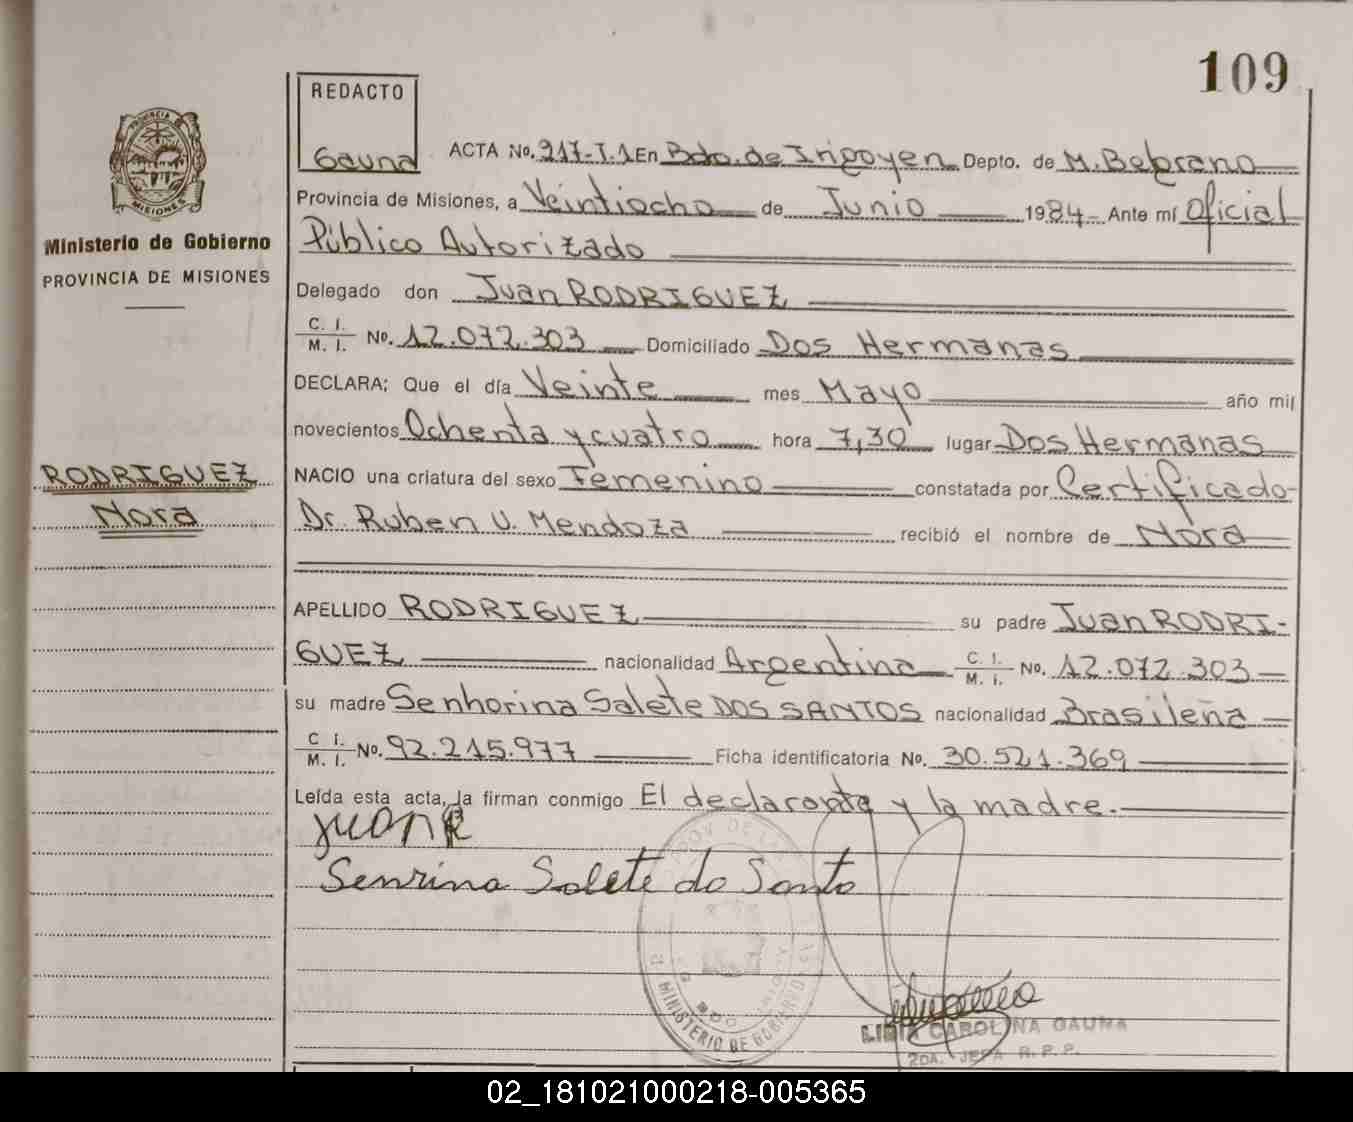 109
REDACTO
Gauna
PROVINCIA DE MISIONES
Ministerio de Gobierno
PROVINCIA DE MISIONES
RODRIGUEZ
Nora
ACTA No. 217-T.1 En Bdo. de Irigoyen Depto. de M. Belgrano
Provincia de Misiones, a Veintiocho de Junio 1984 Ante mí Oficial
Público Autorizado
Delegado don Juan RODRIGUEZ
C. I. M. I. No. 12.072.303 Domiciliado Dos Hermanas
DECLARA; Que el día Veinte mes Mayo año mil
novecientos Ochenta y cuatro hora 7,30 lugar Dos Hermanas
NACIO una criatura del sexo Femenino constatada por Certificado
Dr. Ruben U. Mendoza recibió el nombre de Nora
APELLIDO RODRIGUEZ su padre Juan RODRI-
GUEZ nacionalidad Argentina C. I. M. I. No. 12.072.303
su madre Senhorina Salete DOS SANTOS nacionalidad Brasileña
C I. M. I. No. 92.215.977 Ficha identificatoria No. 30.521.369
Leída esta acta, la firman conmigo El declarante y la madre.
Juan R
Senrina Salete do Santo
MINISTERIO DE GOBIERNO
LIDIA CAROLINA GAUNA
2DA. JEFA R. P. P.
02_181021000218-005365